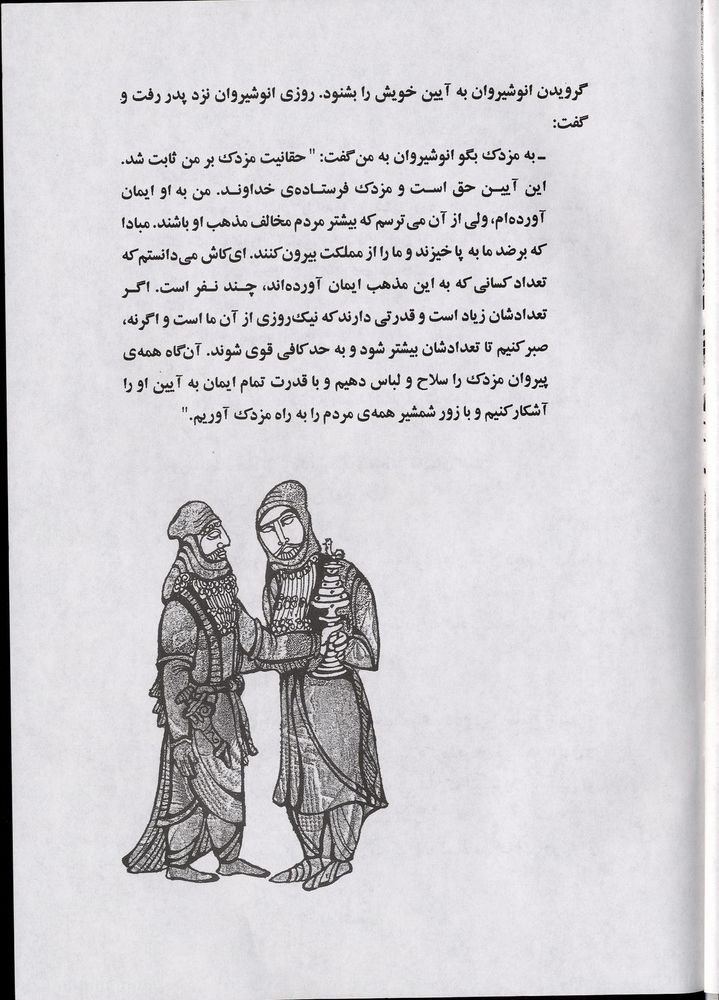 گرویدن انوشیروان به آیین خویش را بشنود. روزی انوشیروان نزد پدر رفت و
گفت:
ـ به مزدک بگو انوشیروان به من گفت: " حقانیت مزدک بر من ثابت شد.
این آییـن حق است و مزدک فرستـاده‌ی خداونـد. من به او ایمان
آورده‌ام، ولی از آن می‌ترسم که بیشتر مردم مخالف مذهب او باشند. مبادا
که برضد ما به پا خیزند و ما را از مملکت بیرون کنند. ای‌کاش می‌دانستم که
تعداد کسانی که به این مذهب ایمان آورده‌اند، چـند نـفر است. اگـر
تعدادشان زیاد است و قدرتی دارند که نیک‌روزی از آن ما است و اگرنه،
صبر کنیم تا تعدادشان بیشتر شود و به حد کافی قوی شوند. آن‌گاه همه‌ی
پیروان مزدک را سلاح و لباس دهیم و با قدرت تمام ایمان به آیین او را
آشکار کنیم و با زور شمشیر همه‌ی مردم را به راه مزدک آوریم."